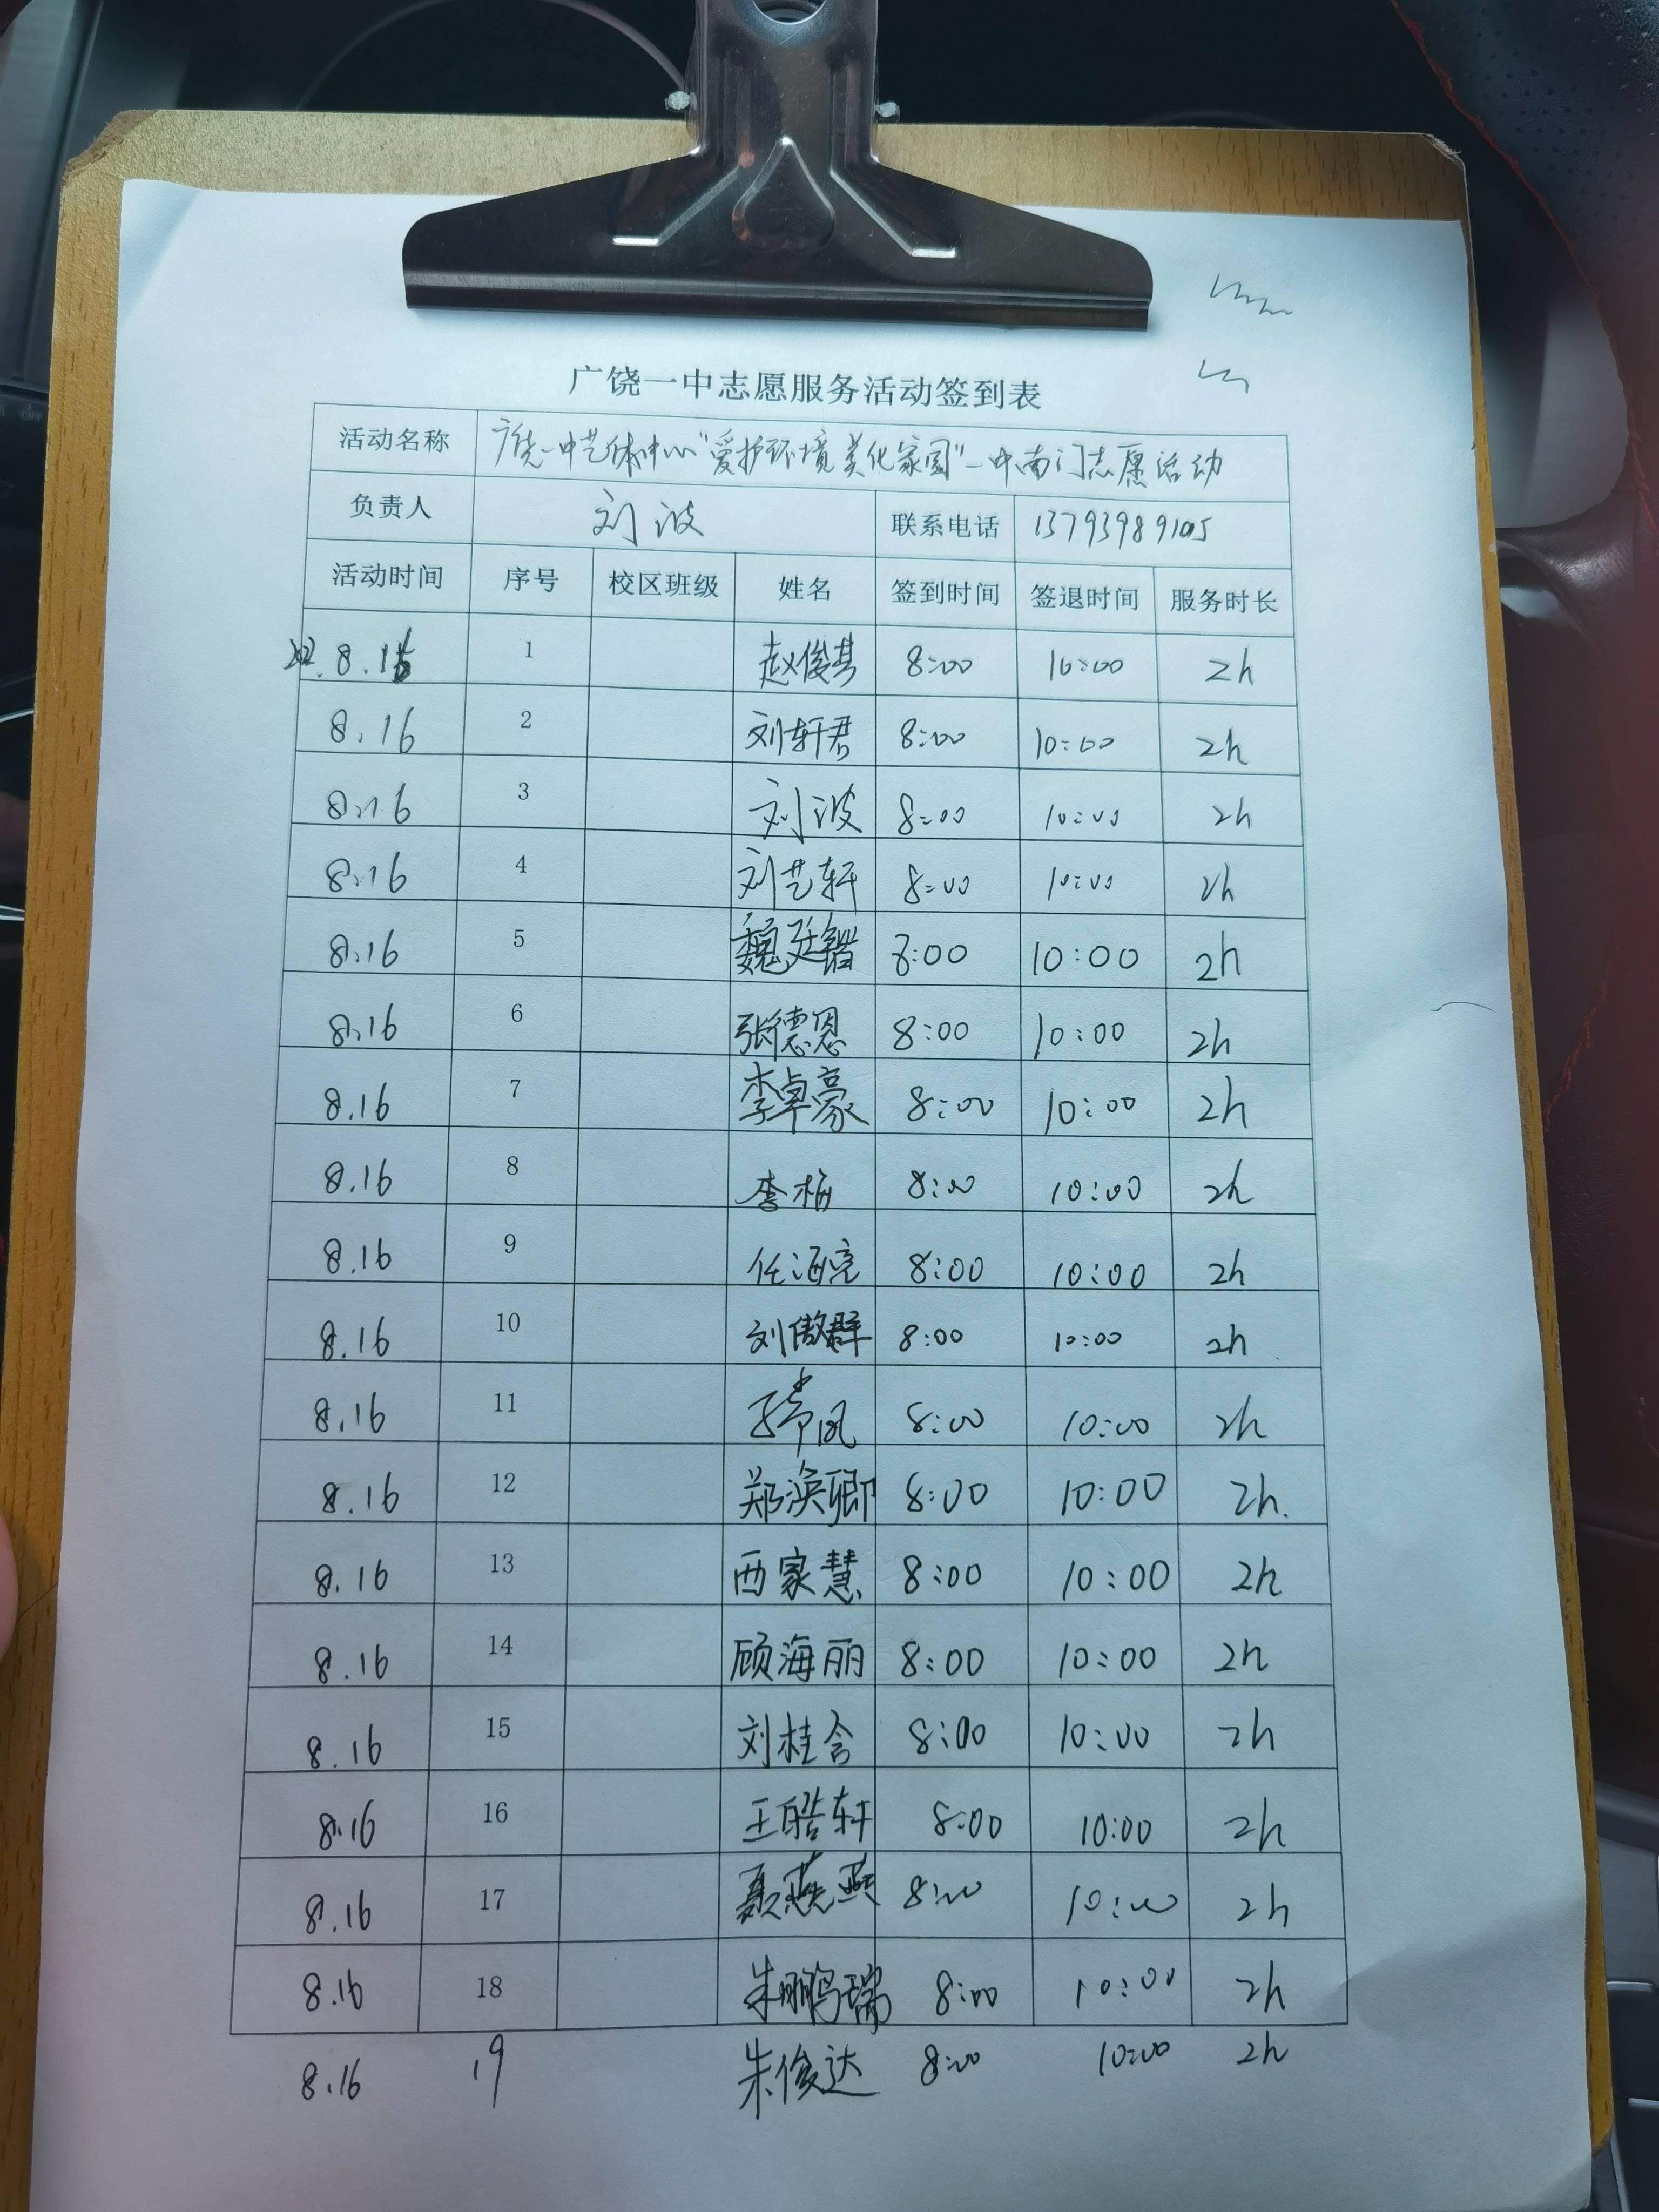 广饶一中志愿服务活动签到表
活动名称 广饶一中艺体中心"爱护环境美化家园"一中南门志愿活动
负责人 刘波 联系电话 13793989105
活动时间 序号 校区班级 姓名 签到时间 签退时间 服务时长
8.16 1 赵俊其 8:00 10:00 2h
8.16 2 刘轩君 8:00 10:00 2h
8.16 3 刘波 8:00 10:00 2h
8.16 4 刘艺轩 8:00 10:00 2h
8.16 5 魏廷锴 8:00 10:00 2h
8.16 6 张德恩 8:00 10:00 2h
8.16 7 李卓豪 8:00 10:00 2h
8.16 8 李梅 8:00 10:00 2h
8.16 9 任海亮 8:00 10:00 2h
8.16 10 刘傲群 8:00 10:00 2h
8.16 11 8:00 10:00 2h
8.16 12 郑涣卿 8:00 10:00 2h.
8.16 13 西家慧 8:00 10:00 2h
8.16 14 顾海丽 8:00 10:00 2h
8.16 15 刘桂含 8:00 10:00 2h
8.16 16 王皓轩 8:00 10:00 2h
8.16 17 聂燕燕 8:00 10:00 2h
8.16 18 朱鹏瑞 8:00 10:00 2h
8.16 19 朱俊达 8:00 10:00 2h